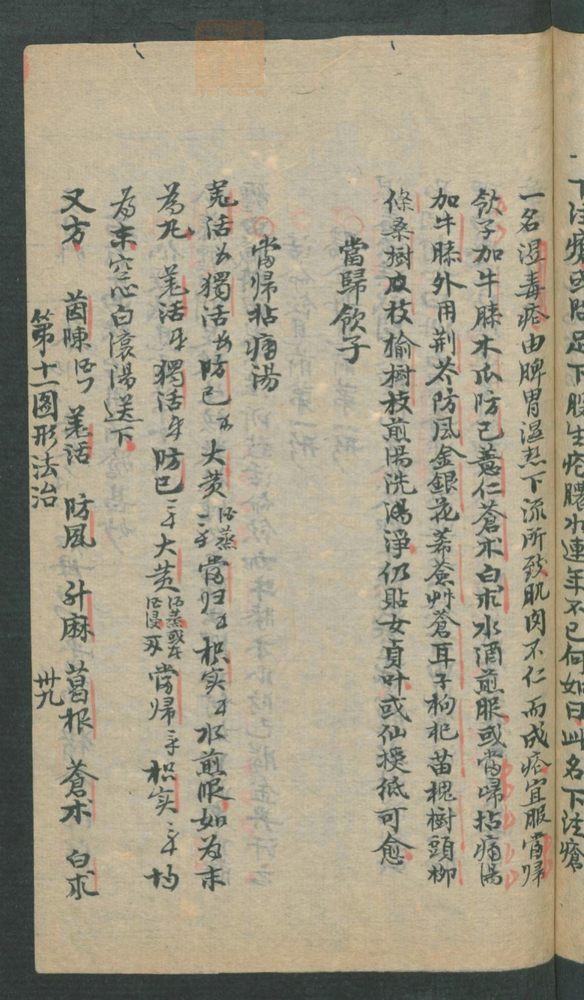 下注瘡或臨足下股生疮膿水連年不已何如曰此名下注瘡
一名湿毒疮由脾胃湿热下流所致肌肉不仁而成疮宜服當歸
飲子加牛膝木瓜防已薏仁蒼朮白朮水酒煎服或當歸拈痛湯
加牛膝外用荆芥防风金銀花蒼耳子枸杞苗槐樹頭柳
條桑樹皮枝榆樹枝煎湯洗淨仍貼女貞叶或仙授紙可愈
當歸飲子
當归拈痛湯
羌活 獨活 防已 大黄 酒蒸 當归 枳实 水煎服如为末
为丸 羌活 獨活 防已 大黄 當歸 枳实 均
为末空心白滾湯送下
又方 茵陳 羌活 防風 升麻 葛根 蒼朮 白朮
第十一圖形法治
卅九